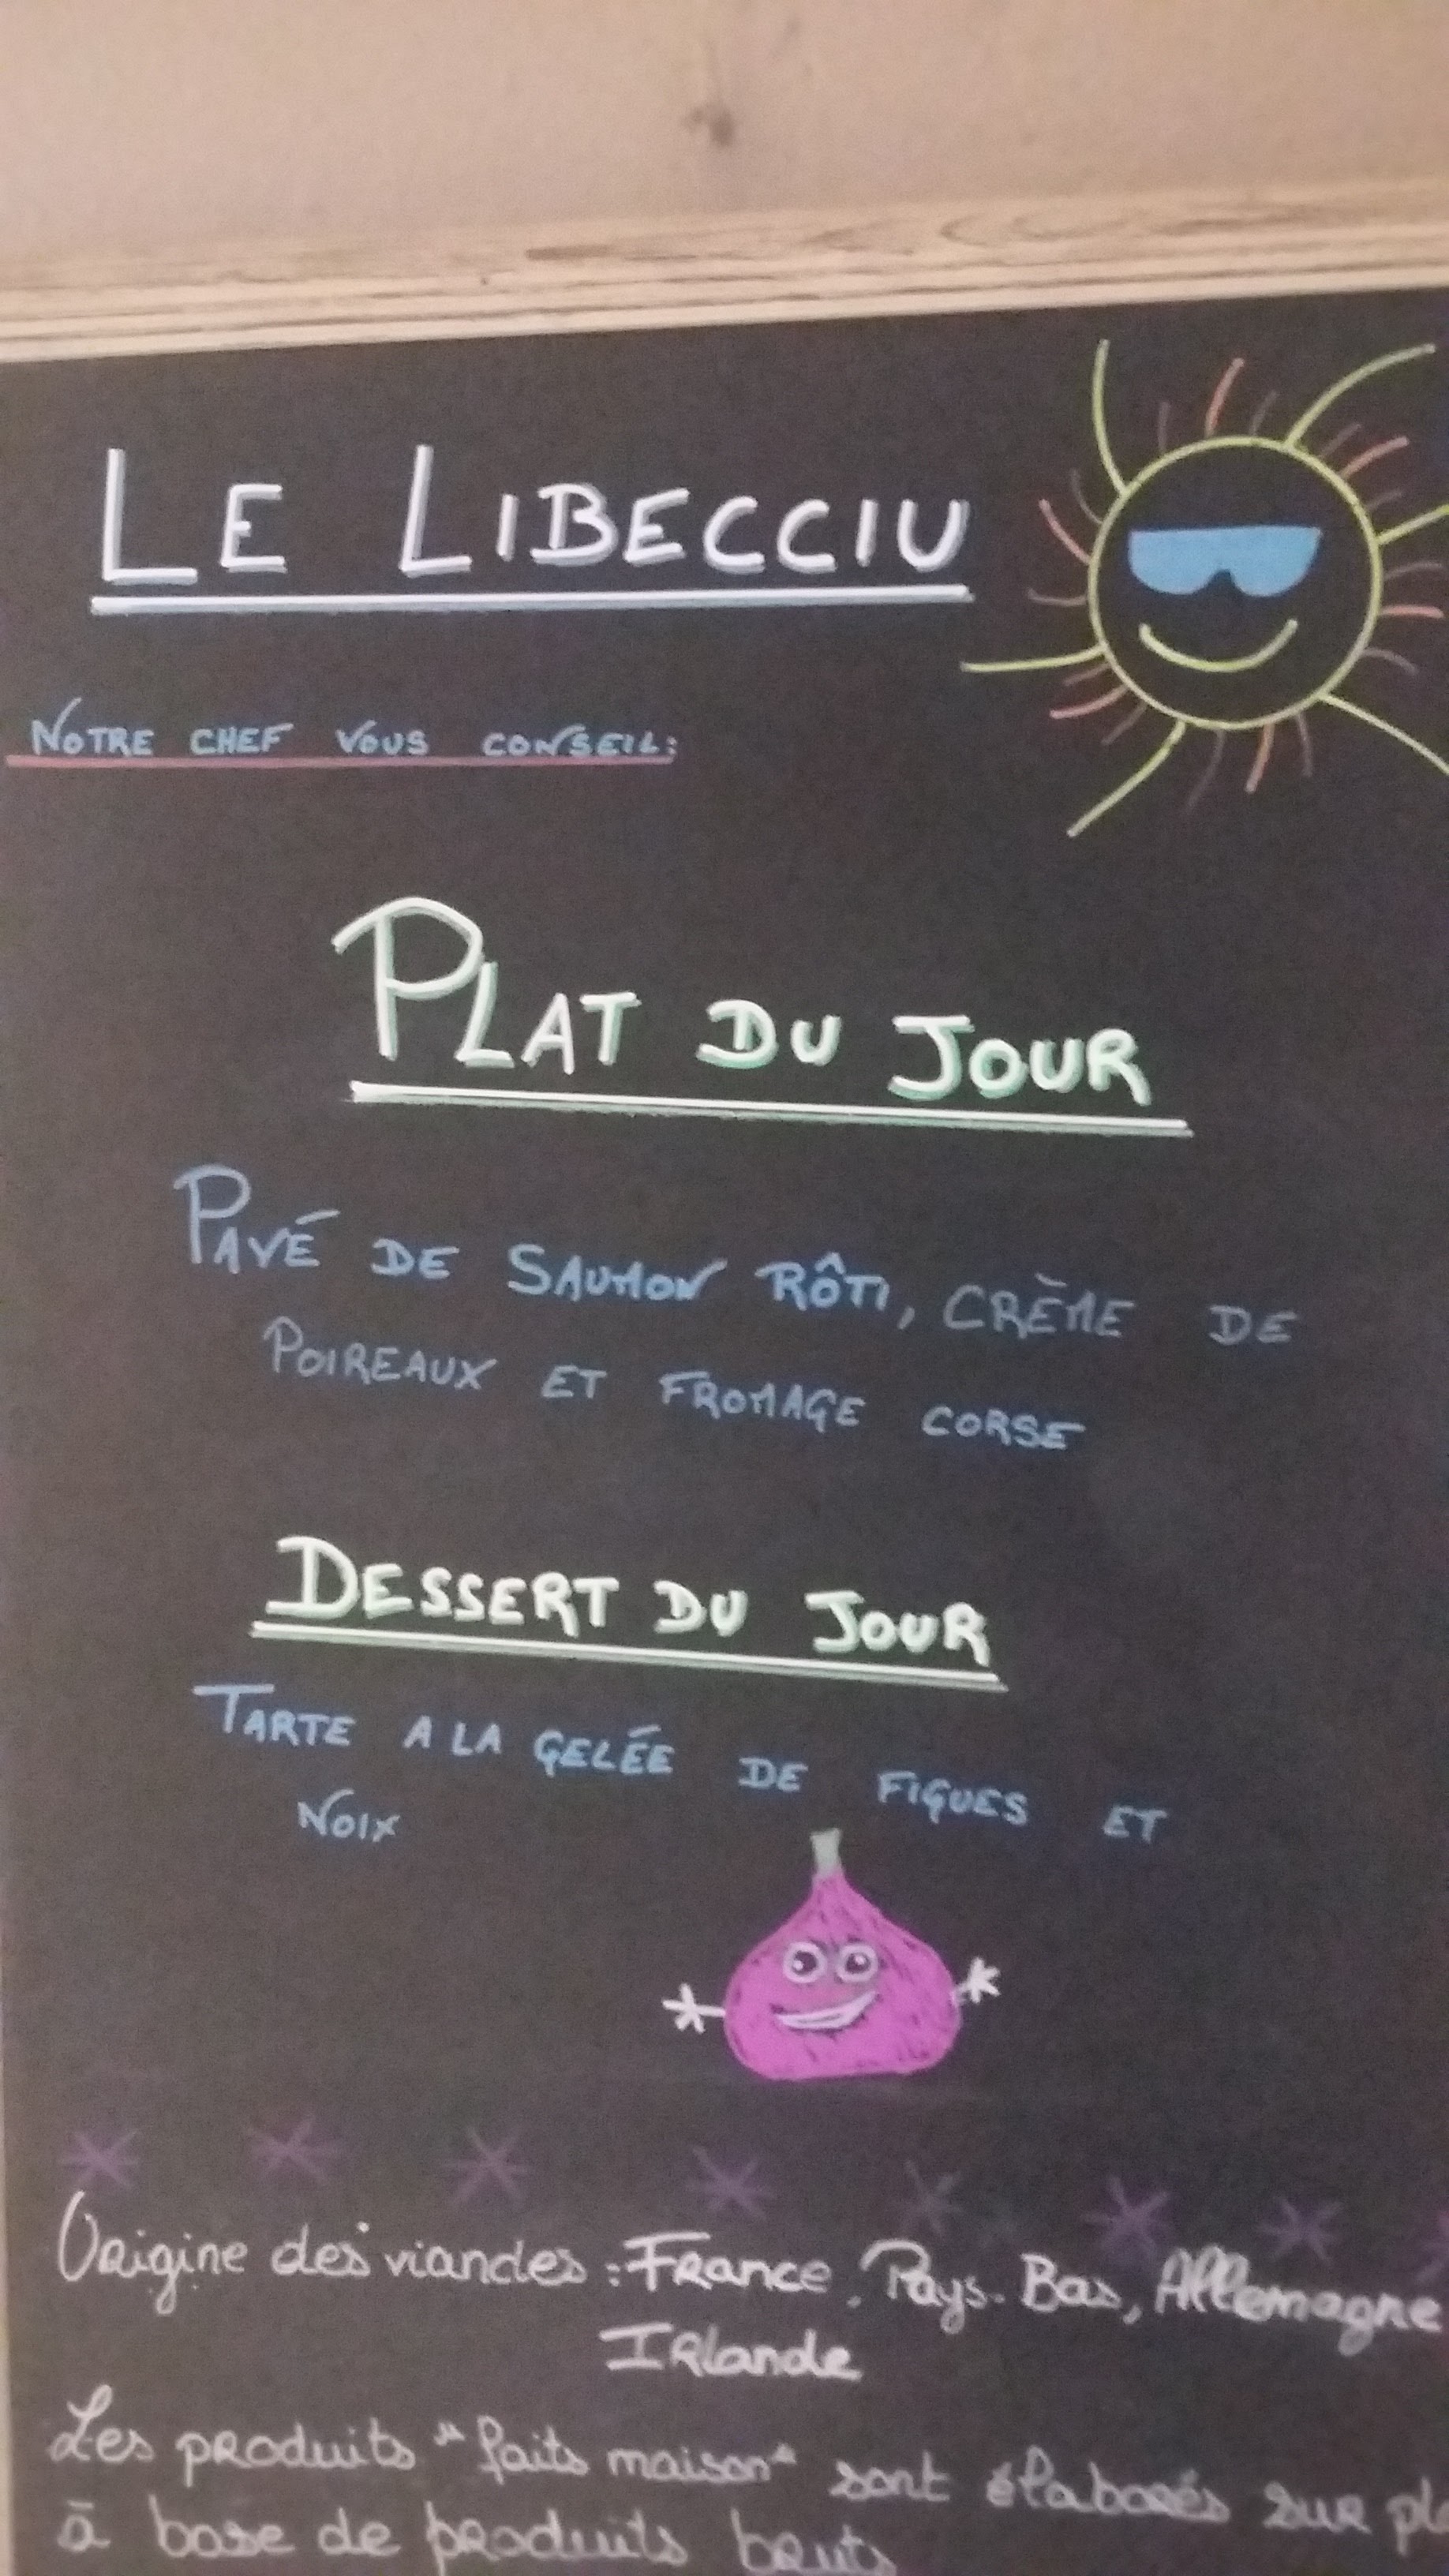 LE LIBECCIU
NOTRE CHEF VOUS CONSEIL:
PLAT DU JOUR
PAVÉ DE SAUMON RÔTI, CRÈME DE
POIREAUX ET FROMAGE CORSE
DESSERT DU JOUR
TARTE A LA GELÉE DE FIGUES ET
NOIX
Origine des viandes : France, Pays-Bas, Allemagne
Irlande
Les produits "faits maison" sont élaborés sur
à base de produits bruts